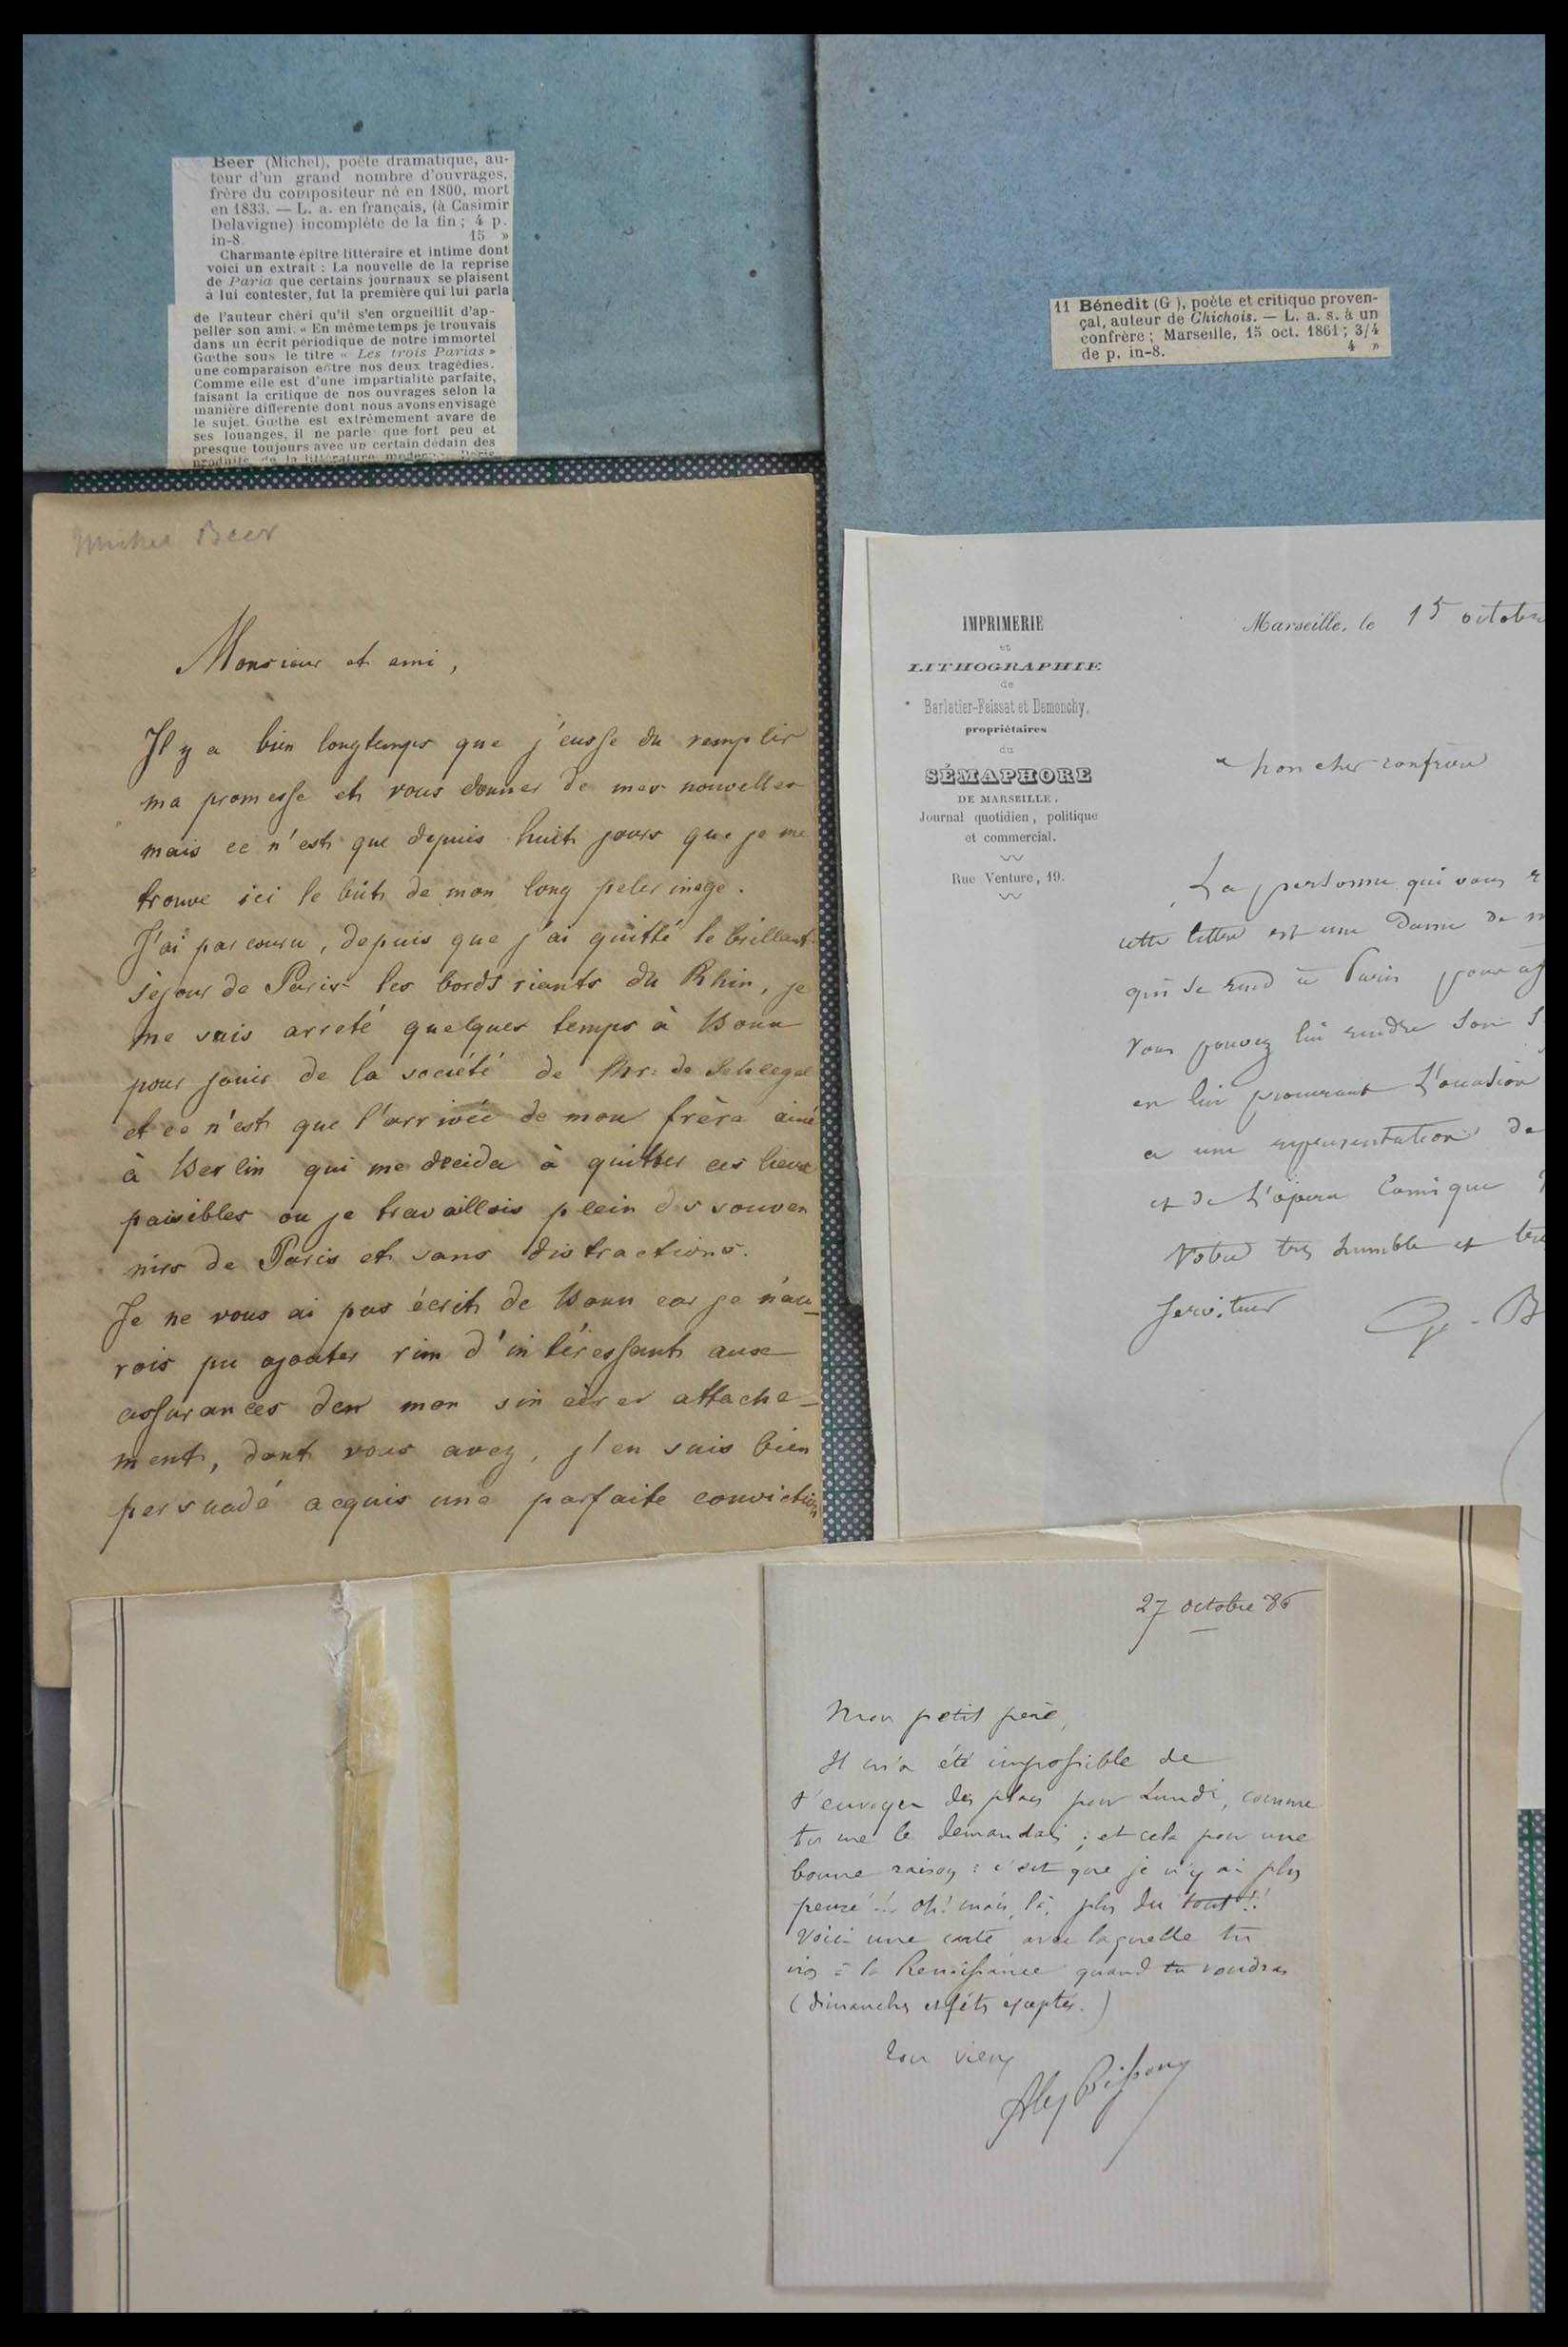 Beer (Michel), poète dramatique, au-
teur d'un grand nombre d'ouvrages,
frère du compositeur né en 1800, mort
en 1833. — L. a. en français, (à Casimir
Delavigne) incomplète de la fin; 4 p.
in-8. 15 »
Charmante épître littéraire et intime dont
voici un extrait : La nouvelle de la reprise
de Paria que certains journaux se plaisent
à lui contester, fut la première qui lui parla
de l'auteur chéri qu'il s'en orgueillit d'ap-
peller son ami. « En même temps je trouvais
dans un écrit périodique de notre immortel
Gœthe sous le titre « Les trois Parias »
une comparaison entre nos deux tragédies.
Comme elle est d'une impartialité parfaite,
faisant la critique de nos ouvrages selon la
manière différente dont nous avons envisagé
le sujet. Gœthe est extrêmement avare de
ses louanges, il ne parle que fort peu et
presque toujours avec un certain dédain des
produits de la littérature moderne
11 Bénédit (G ), poète et critique proven-
çal, auteur de Chichois. — L. a. s. à un
confrère; Marseille, 15 oct. 1861; 3/4
de p. in-8. 4 »
Michel Beer
Monsieur et ami,
Il y a bien longtemps que j'eusse du remplir
ma promesse et vous donner de mes nouvelles
mais ce n'est que depuis huit jours que je me
trouve ici le bût de mon long pelerinage.
J'ai parcouru, depuis que j'ai quitté le brillant
séjour de Paris les bords riants du Rhin, je
me suis arreté quelques temps à Bonn
pour jouir de la société de Mr. de Schlegel
et ce n'est que l'arrivée de mon frère ainé
à Berlin qui me decida à quitter ces lieux
paisibles ou je travaillois plein des souven
nirs de Paris et sans distractions.
Je ne vous ai pas écrit de Bonn car je n'au-
rois pu ajouter rien d'intéressant aux
assurances de mon sincères attache-
ment, dont vous avez, j'en suis bien
persuadé acquis une parfaite conviction
IMPRIMERIE
et
LITHOGRAPHIE
de
Barlatier-Feissat et Demonchy,
propriétaires
du
SÉMAPHORE
DE MARSEILLE,
Journal quotidien, politique
et commercial.
Rue Venture, 19.
Marseille, le 15 octobre
Mon cher confrère
La personne qui vous r
cette lettre est une Dame de m
qui se rend à Paris pour
Vous pouvez lui rendre son s
en lui procurant l'occasion
a une représentation de
et de l'opéra Comique
Votre très humble et trè
Serviteur
G. B
27 octobre 86
Mon petit père,
Il m'a été impossible de
t'envoyer des places pour Lundi, comme
tu me le demandais ; et cela pour une
bonne raison : c'est que je n'y ai plus
pensé !! Oh! mais, là, plus du tout !!
Voici une carte avec laquelle tu
iras à la Renaissance quand tu voudras
(dimanches et fêtes exceptés.)
Ton vieux
Alex Bisson